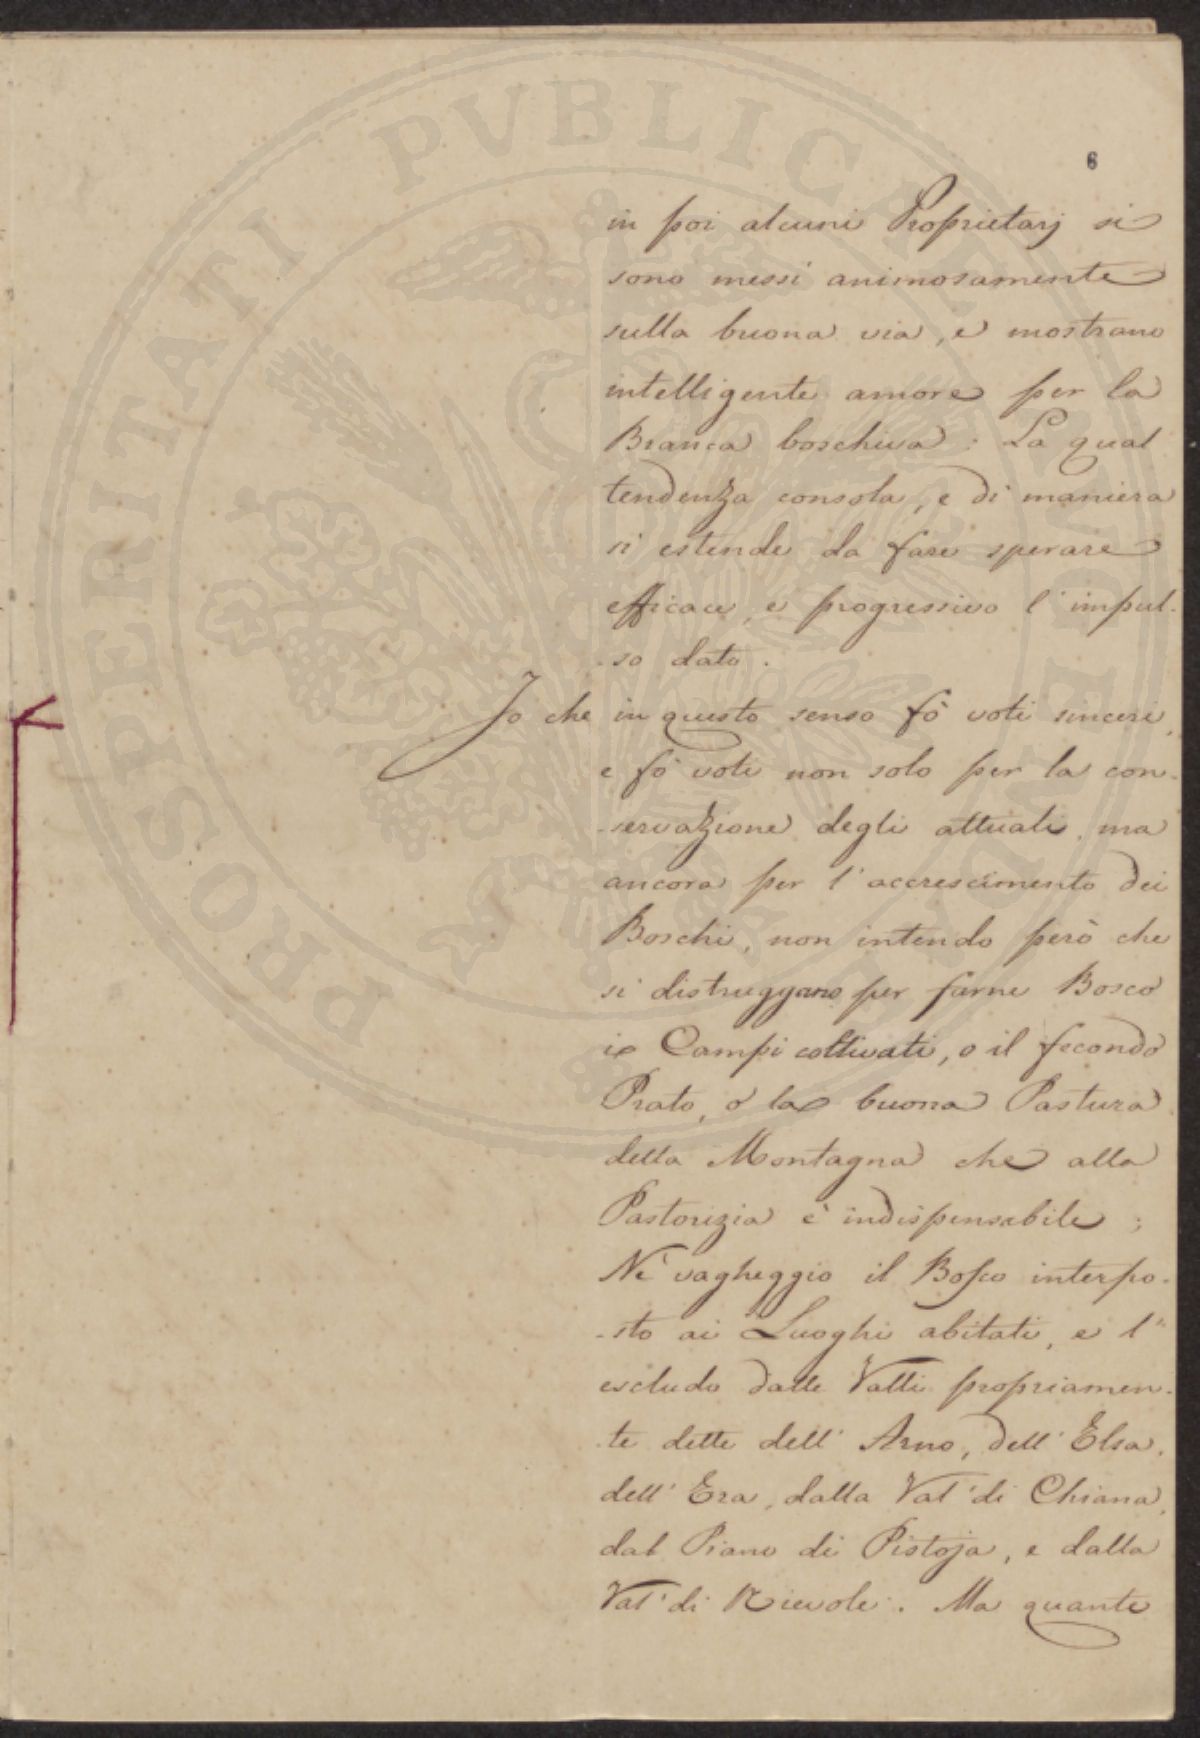 PROSPERITATI PVBLICAE AVGENDAE
6
in poi alcuni Proprietarj si
sono messi animosamente
sulla buona via, e mostrano
intelligente amore per la
Branca boschiva: La qual
tendenza consola, e di maniera
si estende da fare sperare
efficace, e progressivo l'impul-
-so dato.
Io che in questo senso fò voti sinceri,
e fò voti non solo per la con-
-servazione degli attuali, ma
ancora per l'accrescimento dei
Boschi, non intendo però che
si distruggano per farne Bosco
i Campi coltivati, o il fecondo
Prato, o la buona Pastura
della Montagna che alla
Pastorizia è indispensabile;
Nè vagheggio il Bosco interpo-
-sto ai Luoghi abitati, e l'
escludo dalle Valli propriamen-
-te dette dell'Arno, dell'Elsa,
dell'Era, dalla Val di Chiana,
dal Piano di Pistoja, e dalla
Val di Nievole. Ma quante